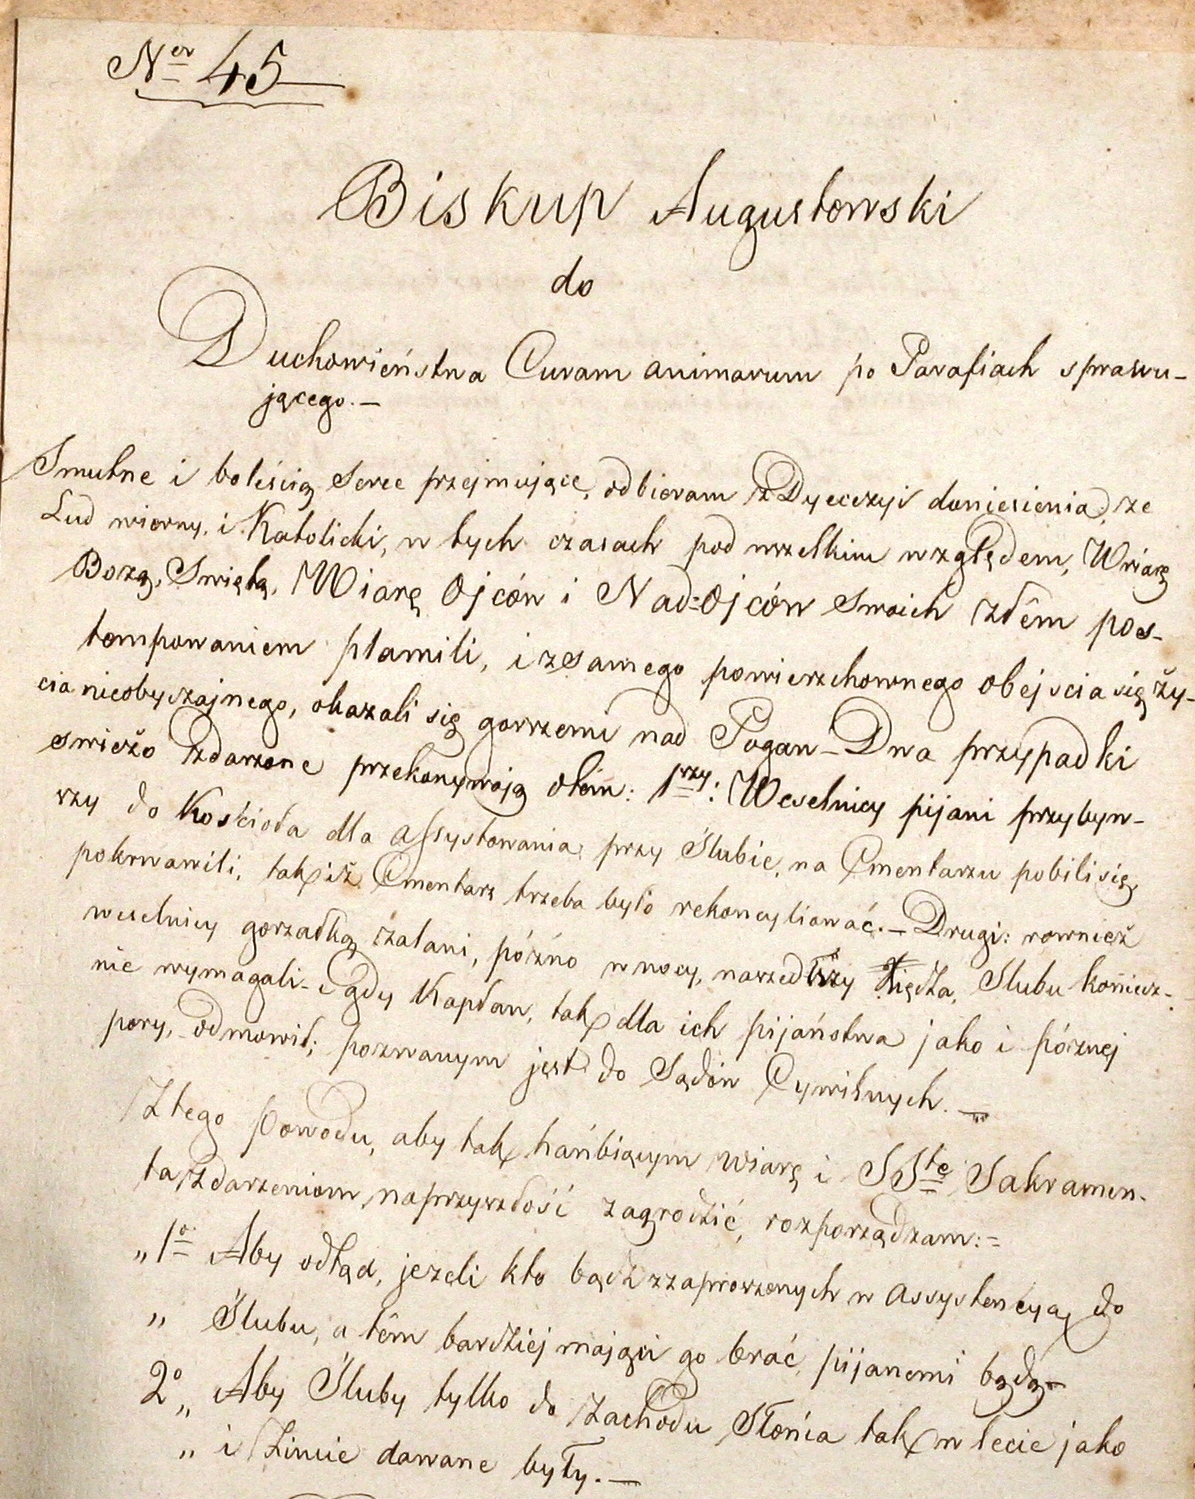 Ner 45
Biskup Augustowski
do
Duchowieństwa Curam animarum po Parafiach sprawu-
jącego.—
Smutne i boleścią serce przejmujące, odbieram z Dyecezyi doniesienia, że
Lud wierny, i Katolicki, w tych czasach pod wszelkim względem, Wiarę
Bozą, Swiętą, Wiarę Ojców i Nad=Ojców swoich złém pos-
tempowaniem plamili, i z samego powierzchownego obejscia się ży-
cia nieobyczajnego, okazali się gorszemi nad Pogan—Dwa przypadki
swieżo zdarzone przekonywają otém: 1rzy: Weselnicy pijani przybyw-
szy do Kościoła dla assystowania przy Ślubie, na Cmentarzu pobili się,
pokrwawili, tak iż Cmentarz trzeba było rekoncyliować.—Drugi: rownież
weselnicy gorzałką zalani, póżno w nocy, naszedłszy Xiędza, Slubu koniecz-
nie wymagali- i gdy Kapłan, tak dla ich pijaństwa jako i póznej
pory, odmowił; pozwanym jest do Sądów Cywilnych.—
Ztego powodu, aby tak hańbiącym wiarę i SSte Sakramen-
ta zdarzeniom naprzyszłość zagrodzić, rozporządzam:=
„1o Aby odtąd, jezeli kto bądz zzaproszonych w assystencyą do
„ Ślubu, a tém bardziej mający go brać, pijanemi będą—
2o„ Aby Śluby tylko do zachodu Słońca tak w lecie jako
„ i Zimie dawane były.—